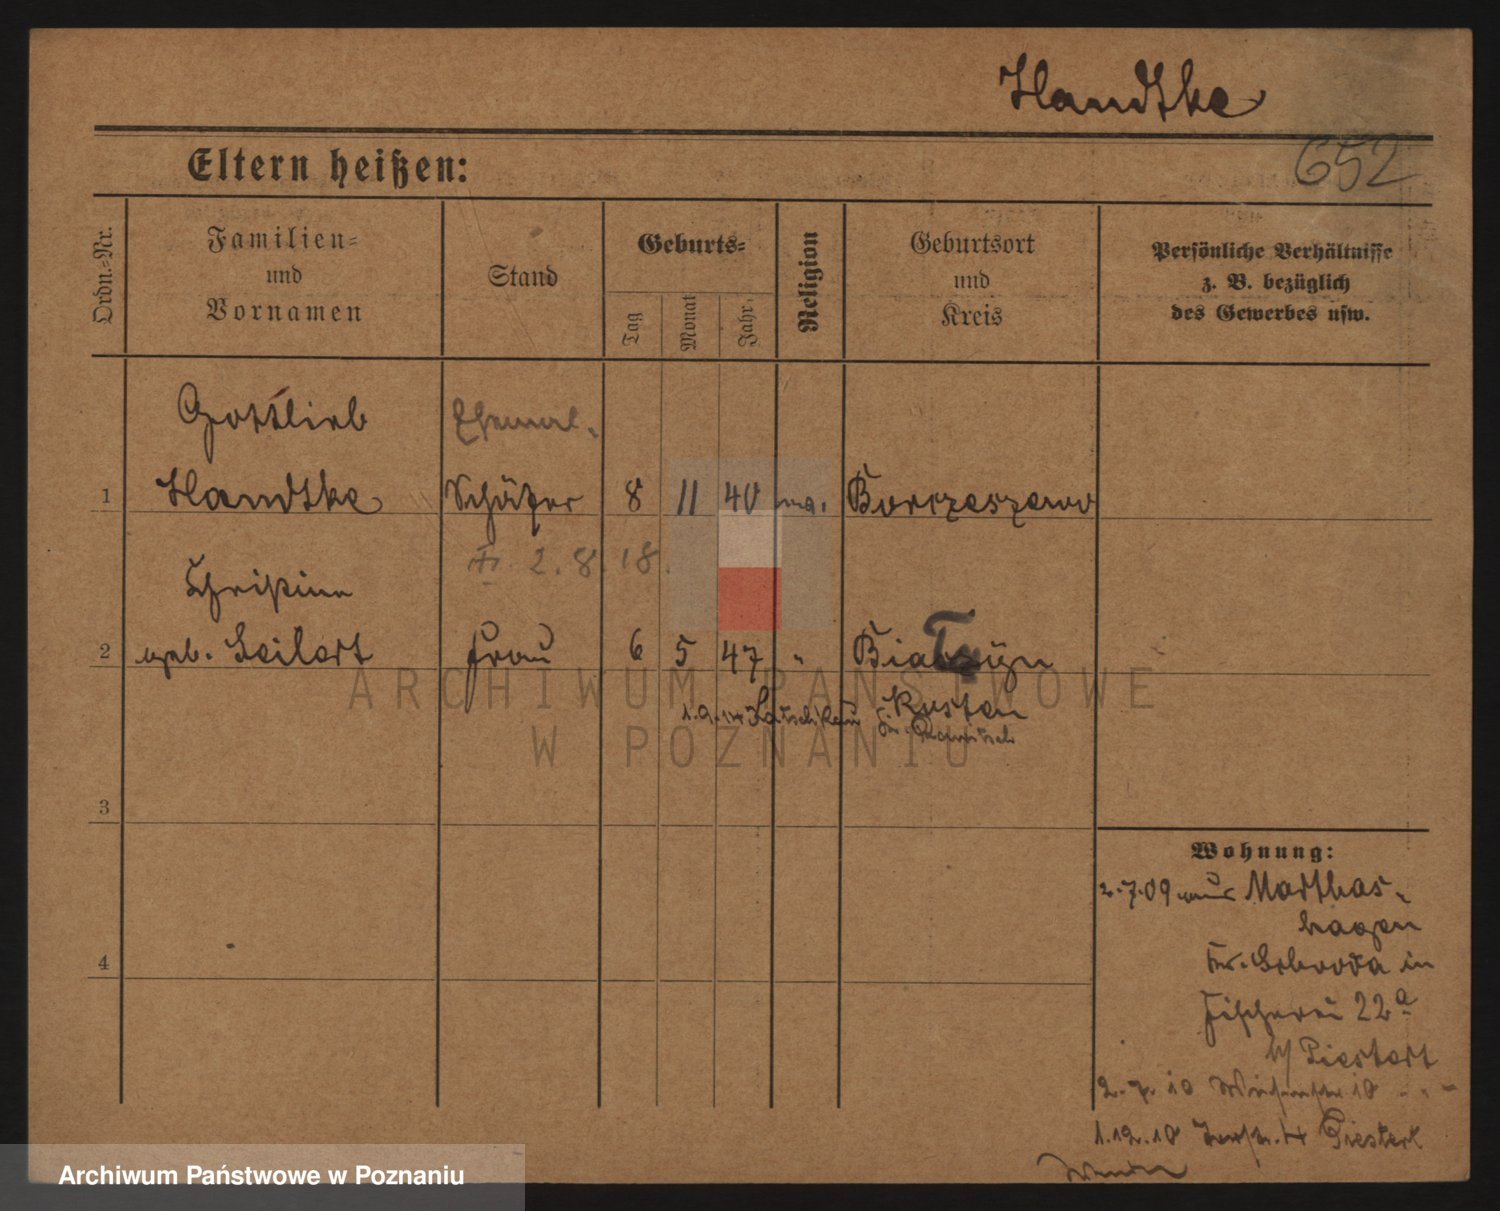 Handtke
652
Eltern heißen:
Ordn.-Nr.
Familien-
und
Vornamen
Stand
Geburts-
Tag
Monat
Jahr.
Religion
Geburtsort
und
Kreis
Persönliche Verhältnisse
z. B. bezüglich
des Gewerbes usw.
Gottlieb
Ehemal.
1 Handtke Schäfer 8 11 40 Borczeszewo
2.8.18.
Christine
2 geb. Seilert Frau 6 5 47 "
Kosten
3
4
Wohnung:
2.7.09 aus Marthas-
hagen
in
Fischerei 22a
b/ Piestert
2.7.10
1.12.10
ARCHIWUM PAŃSTWOWE
W POZNANIU
Archiwum Państwowe w Poznaniu